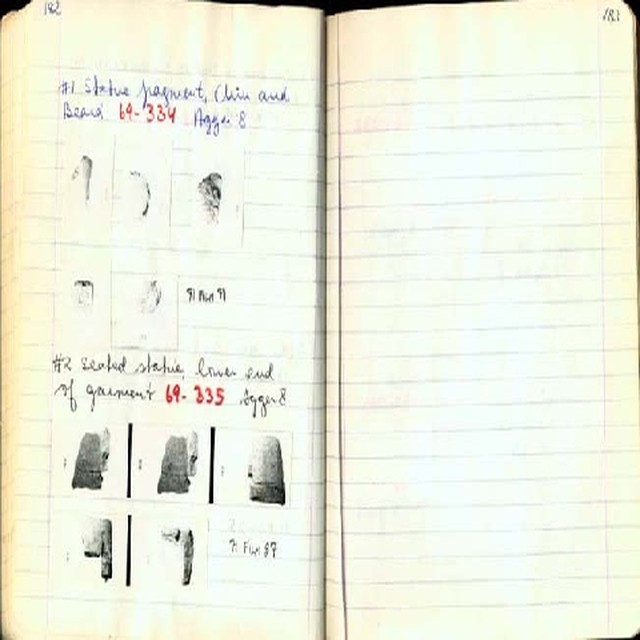 182
#1 Statue fragment, Chin and
Beard 69-334 Agger 8
#2 Seated statue, lower end
of garment 69-335 Agger 8
183